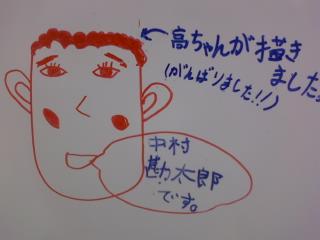 高ちゃんが描き
ました。
(がんばりました!!)
中村
勘太郎
です。